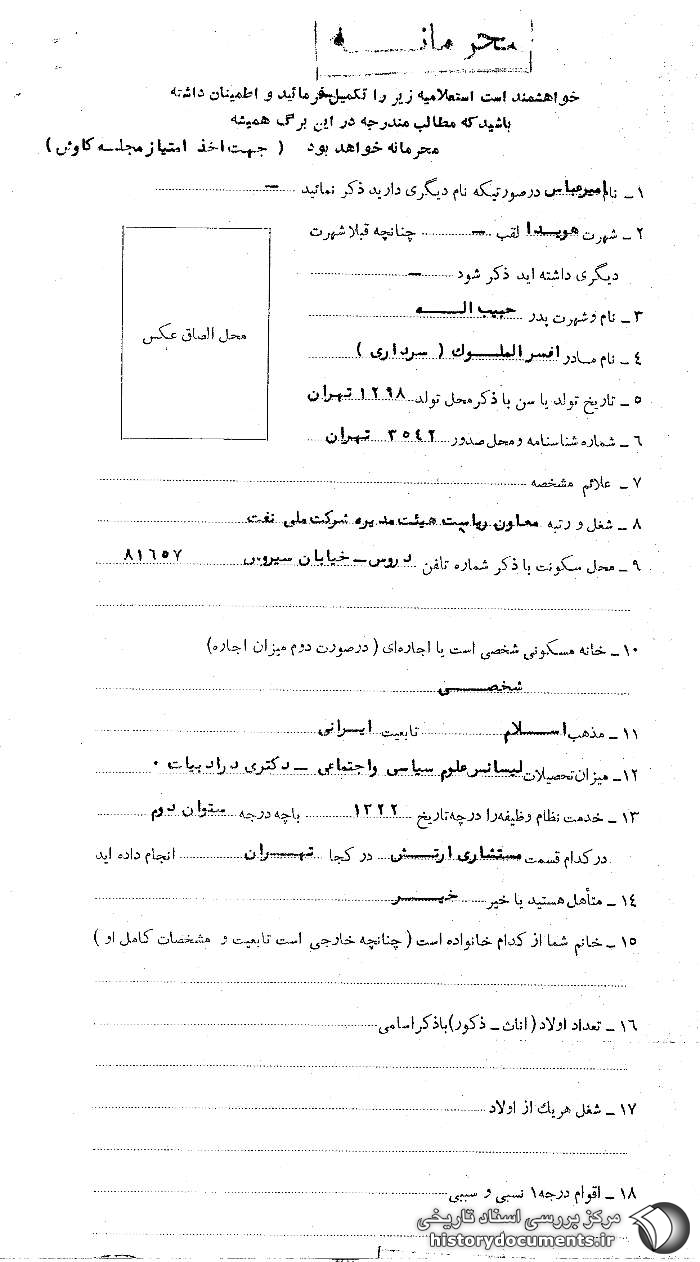 محرمانه
خواهشمند است استعلامیه زیر را تکمیل فرمائید و اطمینان داشته
باشید که مطالب مندرجه در این برگ همیشه
محرمانه خواهد بود ( جهت اخذ امتیاز مجله کاوش )
۱ ـ نام امیرعباس درصورتیکه نام دیگری دارید ذکر نمائید ـ
۲ ـ شهرت هویدا لقب ـ چنانچه قبلا شهرت
دیگری داشته اید ذکر شود ـ
محل الصاق عکس
۳ ـ نام و شهرت پدر حبیب اله
٤ ـ نام مادر افسر الملوک ( سرداری )
٥ ـ تاریخ تولد یا سن با ذکر محل تولد ۱۲۹۸ تهران
٦ ـ شماره شناسنامه و محل صدور ۳٥٤۲ تهران
۷ ـ علائم مشخصه
۸ ـ شغل و رتبه معاون ریاست هیئت مدیره شرکت ملی نفت
۹ ـ محل سکونت با ذکر شماره تلفن دروس ـ خیابان سیروس ۸۱٦٥۷
۱۰ ـ خانه مسکونی شخصی است یا اجاره‌ای ( درصورت دوم میزان اجاره)
شخصی
۱۱ ـ مذهب اسلام تابعیت ایرانی
۱۲ ـ میزان تحصیلات لیسانس علوم سیاسی واجتماعی ـ دکتری در ادبیات ۰
۱۳ ـ خدمت نظام وظیفه را درچه تاریخ ۱۳۲۲ باچه درجه ستوان دوم
در کدام قسمت مستشاری ارتش در کجا تهران انجام داده اید
۱٤ ـ متأهل هستید یا خیر خیر
۱٥ ـ خانم شما از کدام خانواده است ( چنانچه خارجی است تابعیت و مشخصات کامل او )
۱٦ ـ تعداد اولاد ( اناث ـ ذکور ) با ذکر اسامی
۱۷ ـ شغل هریک از اولاد
۱۸ ـ اقوام درجه ۱ نسبی و سببی
مرکز بررسی اسناد تاریخی
historydocuments.ir